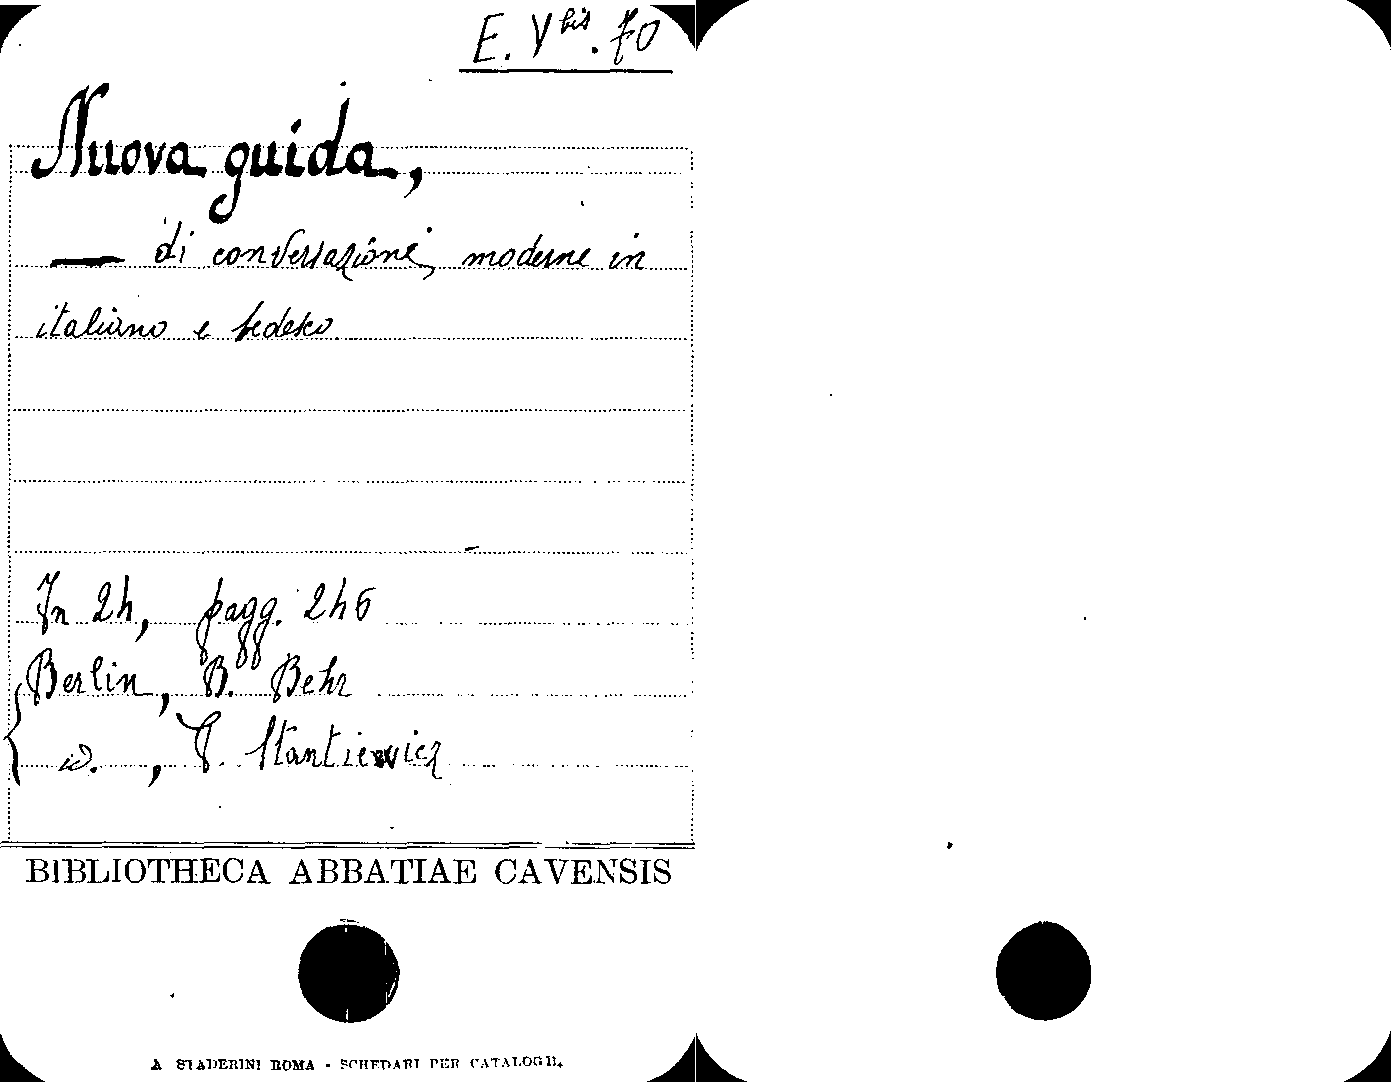 E. Vbis. 70
Nuova guida,
— di conversazione, moderne in
italiano e tedesco.
In 24, pagg. 246
Berlin, B. Behr
id. , T. Stankiewicz
BIBLIOTHECA ABBATIAE CAVENSIS
A STADERINI ROMA - SCHEDARI PER CATALOGHI.